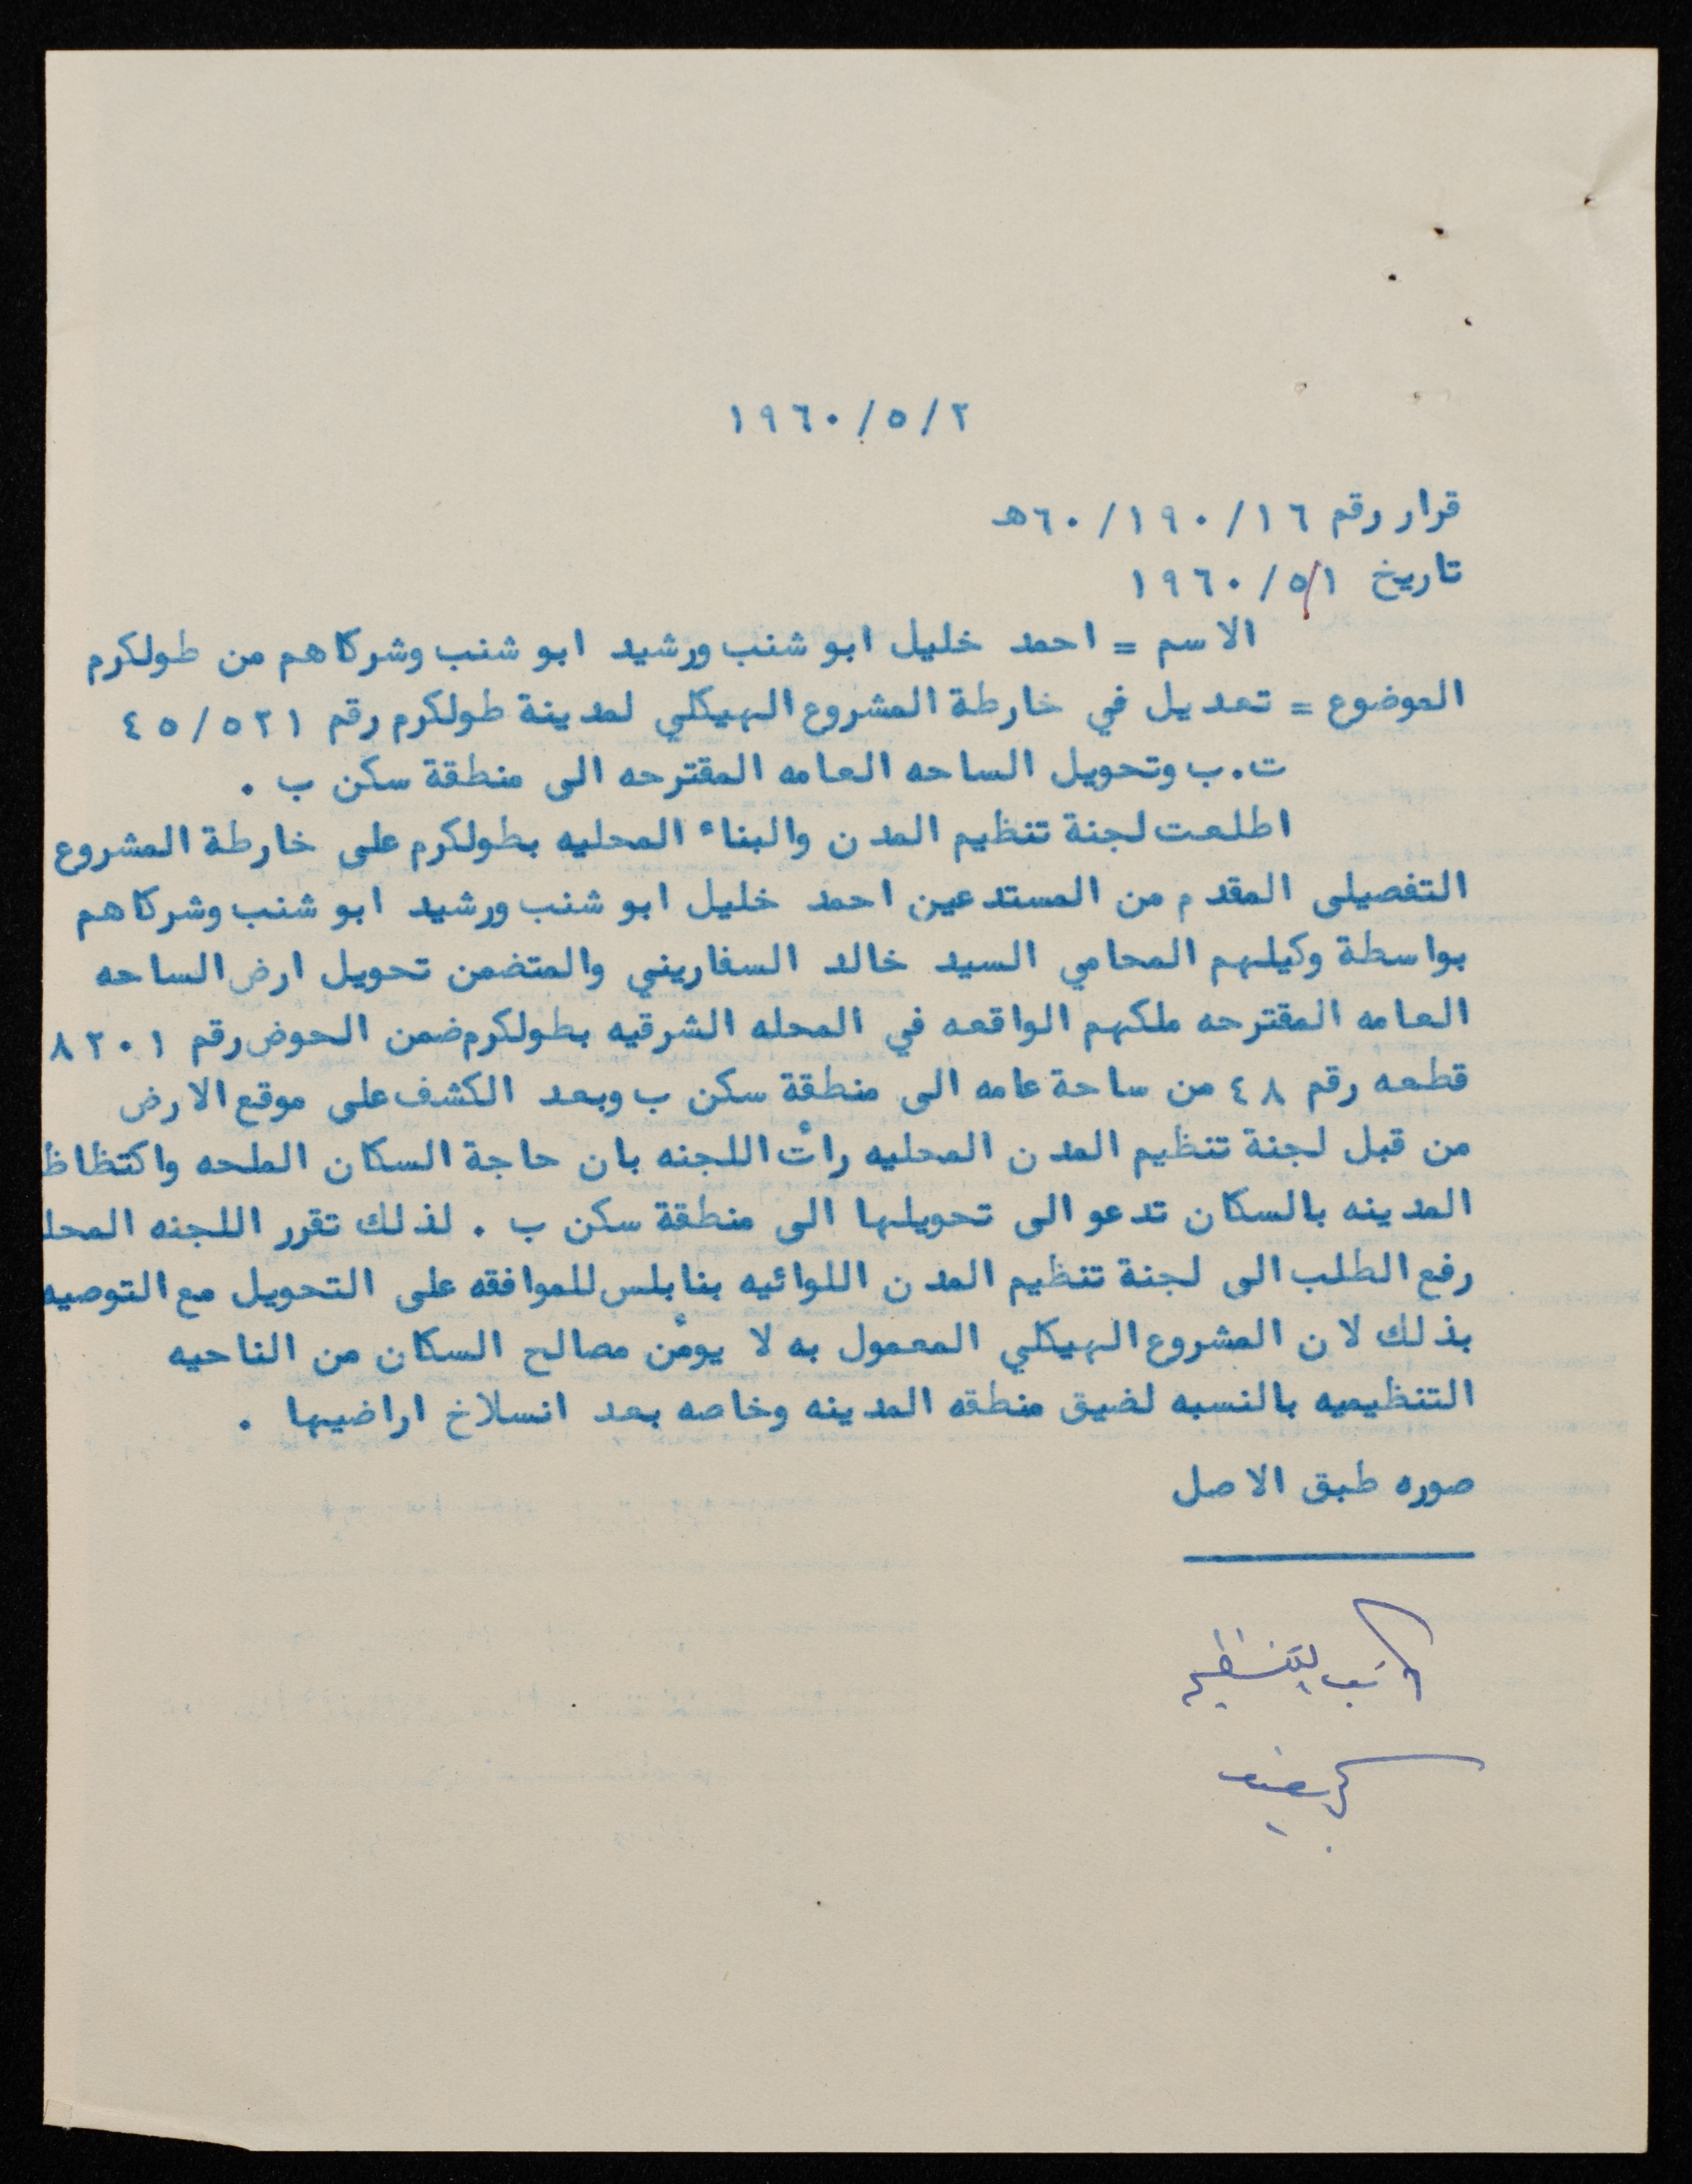 ١٩٦٠/٥/٢
قرار رقم ٦٠/١٩٠/١٦هـ
تاريخ ١٩٦٠/٥/١
الاسم = احمد خليل ابو شنب ورشيد ابو شنب وشركاهم من طولكرم
الموضوع = تعديل في خارطة المشروع الهيكلي لمدينة طولكرم رقم ٤٥/٥٢١
ت.ب وتحويل الساحه العامه المقترحه الى منطقة سكن ب .
اطلعت لجنة تنظيم المدن والبناء المحليه بطولكرم على خارطة المشروع
التفصيلى المقدم من المستدعين احمد خليل ابو شنب ورشيد ابو شنب وشركاهم
بواسطة وكيلهم المحامي السيد خالد السفاريني والمتضمن تحويل ارض الساحه
العامه المقترحه ملكهم الواقعه في المحله الشرقيه بطولكرم ضمن الحوض رقم ٨٢٠١
قطعه رقم ٤٨ من ساحة عامه الى منطقة سكن ب وبعد الكشف على موقع الارض
من قبل لجنة تنظيم المدن المحليه رأت اللجنه بان حاجة السكان الملحه واكتظاظ
المدينه بالسكان تدعو الى تحويلها الى منطقة سكن ب . لذلك تقرر اللجنه المحل
رفع الطلب الى لجنة تنظيم المدن اللوائيه بنابلس للموافقه على التحويل مع التوصيه
بذلك لان المشروع الهيكلي المعمول به لا يومٔن مصالح السكان من الناحيه
التنظيميه بالنسبه لضيق منطقه المدينه وخاصه بعد انسلاخ اراضيها .
صوره طبق الاصل
كاتب التنظيم